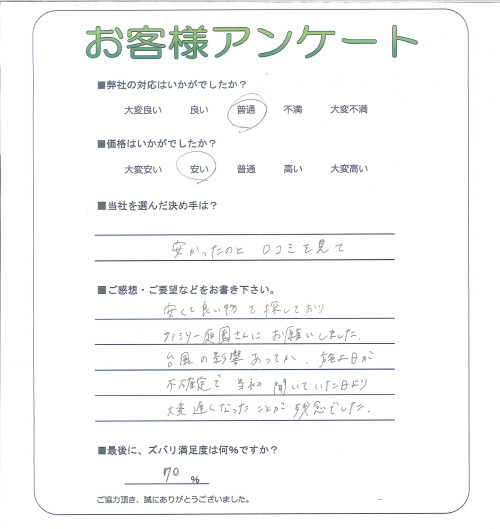 お客様アンケート
■弊社の対応はいかがでしたか？
大変良い 良い 普通 不満 大変不満
■価格はいかがでしたか？
大変安い 安い 普通 高い 大変高い
■当社を選んだ決め手は？
安かったのと 口コミを見て
■ご感想・ご要望などをお書き下さい。
安くて良い物で探しており
ファミリー庭園さんにお願いしました。
台風の影響あってか、施工日が
不確定で 当初 聞いていた日より
大変遅くなったことが残念でした。
■最後に、ズバリ満足度は何%ですか？
70 %
ご協力頂き、誠にありがとうございました。